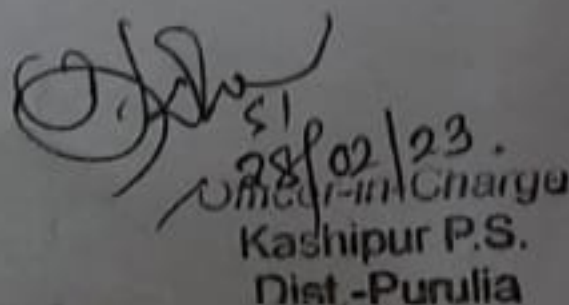 SI
28/02/23.
Officer-in-Charge
Kashipur P.S.
Dist.-Purulia